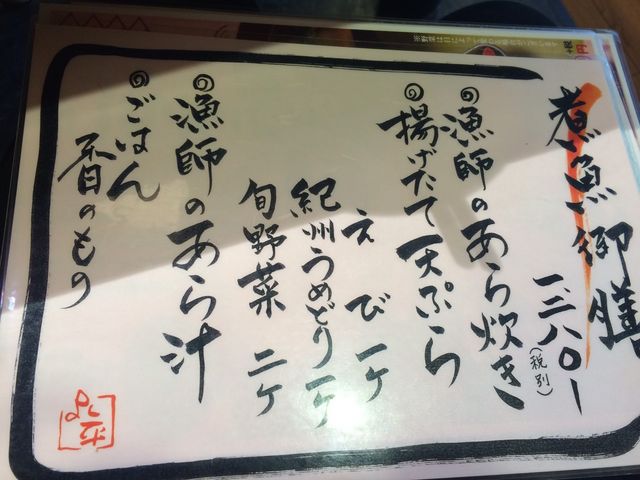 煮魚御膳
一、三八〇ー
(税別)
◎漁師のあら炊き
◎揚げたて天ぷら
えび一ケ
紀州うめどり一ケ
旬野菜 二ケ
◎漁師のあら汁
◎ごはん
香のもの